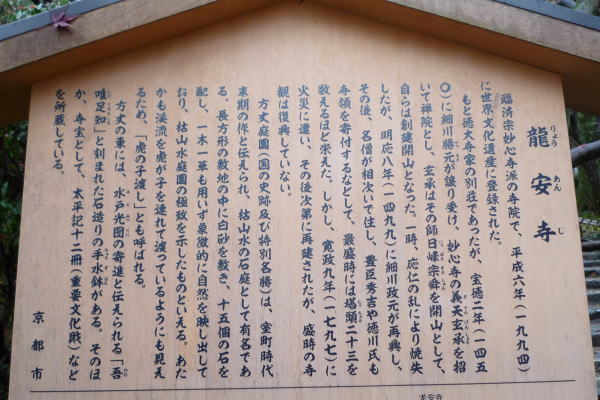 龍安寺
りょうあんじ
臨済宗妙心寺派の寺院で、平成六年(一九九四)
に世界文化遺産に登録された。
もと徳大寺家の別荘であったが、宝徳二年(一四五
〇)に細川勝元が譲り受け、妙心寺の義天玄承を招
いて禅院とし、玄承はその師日峰宗舜を開山として、
自らは創建開山となった。一時、応仁の乱により焼失
したが、明応八年(一四九九)に細川政元が再興し、
その後、名僧が相次いで住し、豊臣秀吉や徳川氏も
寺領を寄付するなどして、最盛時には塔頭二十三を
数えるほど栄えた。しかし、寛政九年(一七九七)に
火災に遭い、その後次第に再建されたが、盛時の寺
観は復興していない。
方丈庭園(国の史跡及び特別名勝)は、室町時代
末期の作と伝えられ、枯山水の石庭として有名であ
る。長方形の敷地の中に白砂を敷き、十五個の石を
配し、一木一草も用いず象徴的に自然を映し出して
おり、枯山水庭園の極致を示したものといえる。あた
かも渓流を虎が子を連れて渡っているようにも見え
るため、「虎の子渡し」とも呼ばれる。
方丈の東には、水戸光圀の寄進と伝えられる「吾
唯足知」と刻まれた石造りの手水鉢がある。そのほ
か、寺宝として、太平記十二冊(重要文化財)など
を所蔵している。
京都市
龙安寺